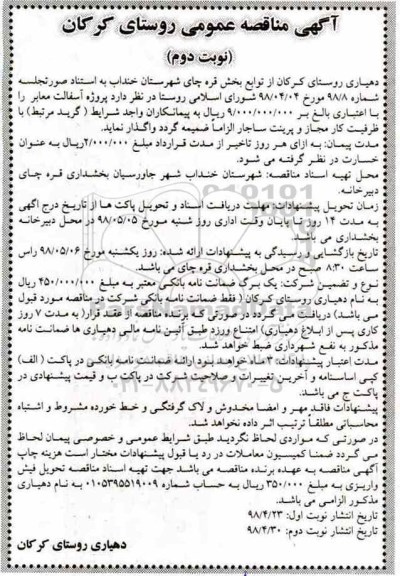 آگهی مناقصه عمومی روستای کرکان
(نوبت دوم)
دهیاری روستای کرکان از توابع بخش قره چای شهرستان خنداب به استناد صورتجلسه
شماره ۹۸/۸ مورخ ۹۸/۰۴/۰۴ شورای اسلامی روستا در نظر دارد پروژه آسفالت معابر را
با اعتباری بالغ بر ۹/۰۰۰/۰۰۰/۰۰۰ ریال به پیمانکاران واجد شرایط (گرید مرتبط) با
ظرفیت کار مجاز و پرینت ساجار الزاماً ضمیمه گردد واگذار نماید.
مدت پیمان: به ازای هر روز تاخیر از مدت قرارداد مبلغ ۲/۰۰۰/۰۰۰ریال به عنوان
خسارت در نظر گرفته می شود.
محل تهیه اسناد مناقصه: شهرستان خنداب شهر جاورسیان بخشداری قره چای
دبیرخانه.
زمان تحویل پیشنهادات: مهلت دریافت اسناد و تحویل پاکت ها از تاریخ درج آگهی
به مدت ۱۴ روز تا پایان وقت اداری روز شنبه مورخ ۹۸/۰۵/۰۵ در محل دبیرخانه
بخشداری می باشد.
تاریخ بازگشایی و رسیدگی به پیشنهادات ارائه شده: روز یکشنبه مورخ ۹۸/۰۵/۰۶ راس
ساعت ۸:۳۰ صبح در محل بخشداری قره چای می باشد.
نوع و تضمین شرکت: یک برگ ضمانت نامه بانکی معتبر به مبلغ ۴۵۰/۰۰۰/۰۰۰ ریال
به نام دهیاری روستای کرکان (فقط ضمانت نامه بانکی شرکت در مناقصه مورد قبول
می باشد) دریافت می گردد در صورتی که برنده مناقصه از عقد قرار( به مدت ۷ روز
کاری پس از ابلاغ دهیاری) امتناع ورزد طبق آئین نامه مالی دهیاری ها ضمانت نامه
مذکور به نفع شهرداری ضبط خواهد شد.
مدت اعتبار پیشنهادات: ۳ ماه خواهد بود ارائه ضمانت نامه بانکی در پاکت (الف)
کپی اساسنامه و آخرین تغییرات و صلاحیت شرکت در پاکت ب و قیمت پیشنهادی در
پاکت ج می باشد.
پیشنهادات فاقد مهر و امضا مخدوش و لاک گرفتگی و خط خورده مشروط و اشتباه
محاسباتی مطلقاً ترتیب اثر داده نخواهد شد.
در صورتی که مواردی لحاظ نگردید طبق شرایط عمومی و خصوصی پیمان لحاظ
می گردد ضمنا کمیسیون معاملات در رد یا قبول پیشنهادات مختار است هزینه چاپ
آگهی مناقصه به عهده برنده مناقصه می باشد جهت تهیه اسناد مناقصه تحویل فیش
واریزی به مبلغ ۳۵۰/۰۰۰ ریال به حساب شماره ۰۱۰۵۳۹۵۵۱۹۰۰۹ به نام دهیاری
مذکور الزامی می باشد.
تاریخ انتشار نوبت اول: ۹۸/۴/۲۳
تاریخ انتشار نوبت دوم: ۹۸/۴/۳۰
دهیاری روستای کرکان